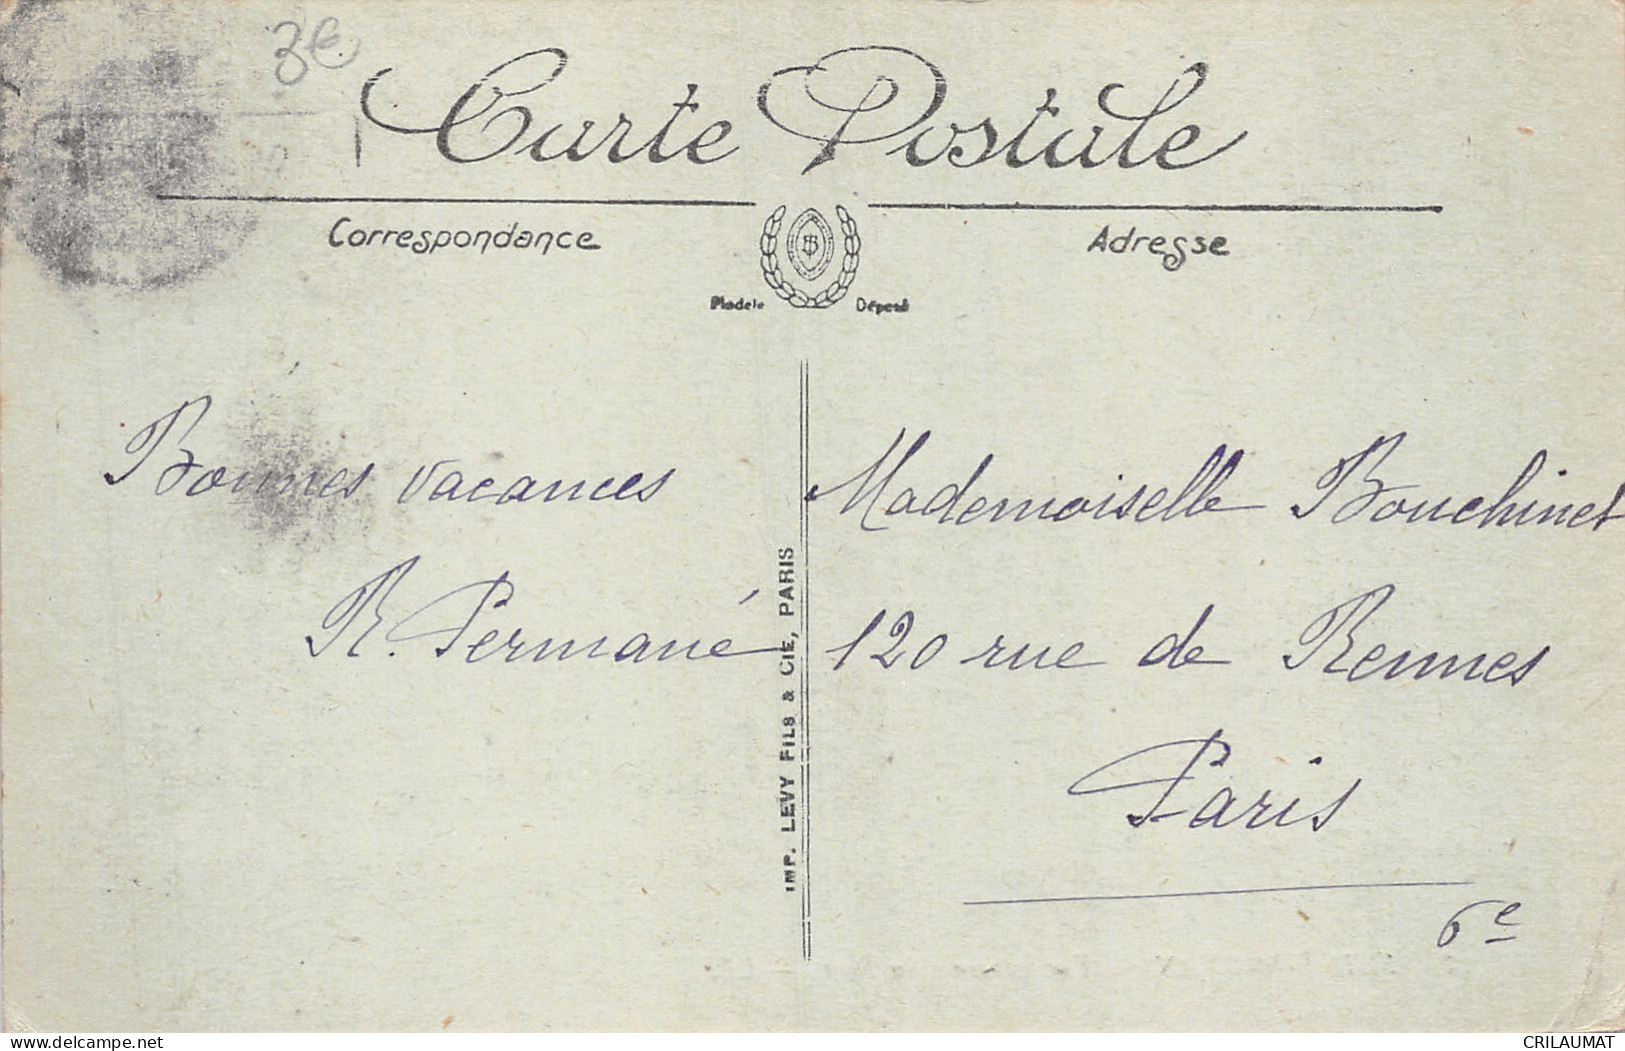 3€
Carte Postale
Correspondance
Adresse
Modèle Déposé
Bonnes vacances
R. Permané
IMP. LEVY FILS & CIE, PARIS
Mademoiselle Bouchinet
120 rue de Rennes
Paris
6e
www.delcampe.net
CRILAUMAT